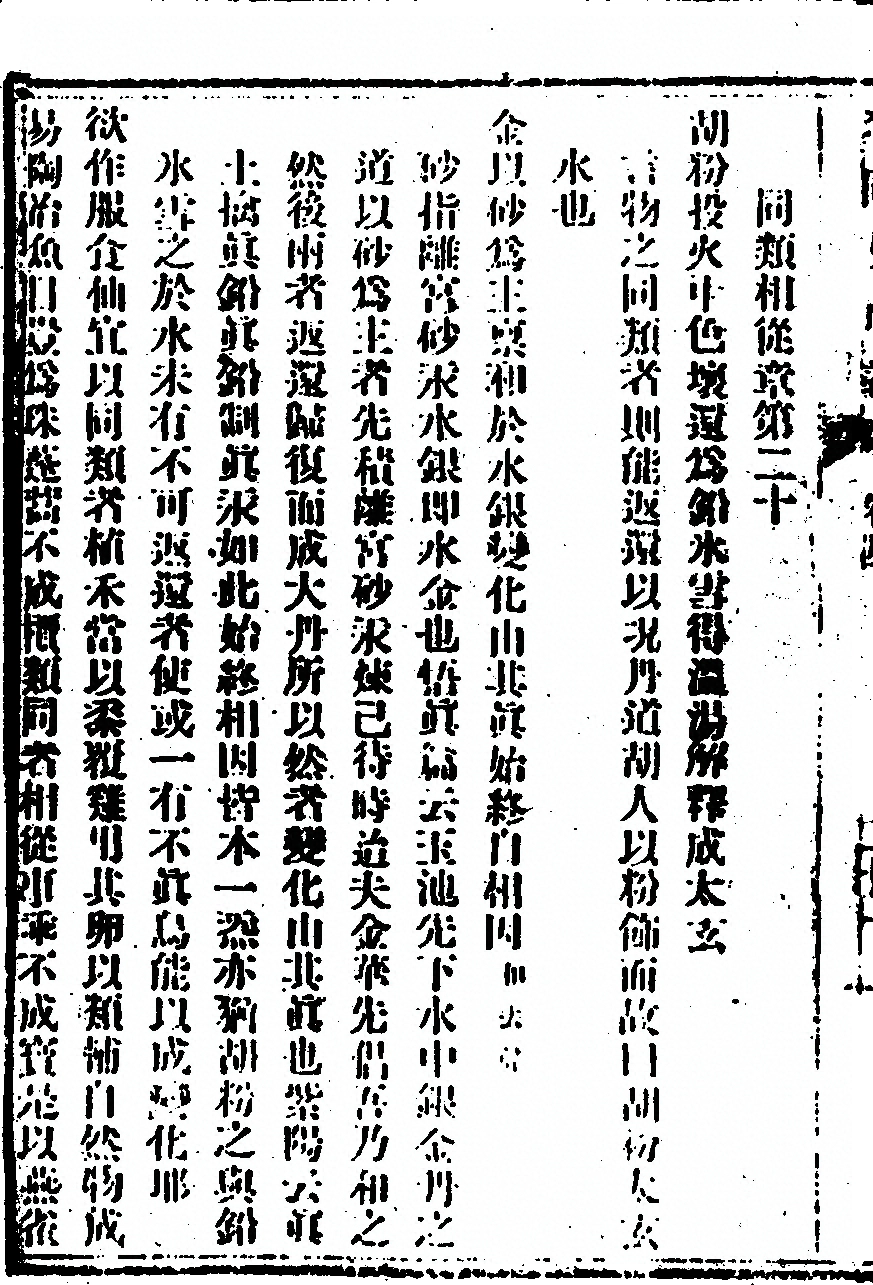 同類相從章第二十
胡粉投火中色壞還爲鉛冰雪得溫湯解釋成太玄
言物之同類者則能返還以況丹道胡人以粉飾面故曰胡粉太玄
水也
金以砂爲主稟和於水銀變化由其眞始終自相因和去聲
砂指離宮砂汞水銀即水金也悟眞篇云玉池先下水中銀金丹之
道以砂爲主者先積離宮砂汞煉己待時迨夫金華先倡吾乃和之
然後兩者返還歸復而成大丹所以然者變化由其眞也紫陽云眞
土擒眞鉛眞鉛制眞汞如此始終相因皆本一炁亦猶胡粉之與鉛
冰雪之於水未有不可返還者使或一有不眞烏能以成變化耶
欲作服食仙宜以同類者植禾當以柔覆雞用其卵以類輔自然物成
易陶冶魚目豈爲珠蓬蒿不成檟類同者相從事乖不成寶是以燕雀